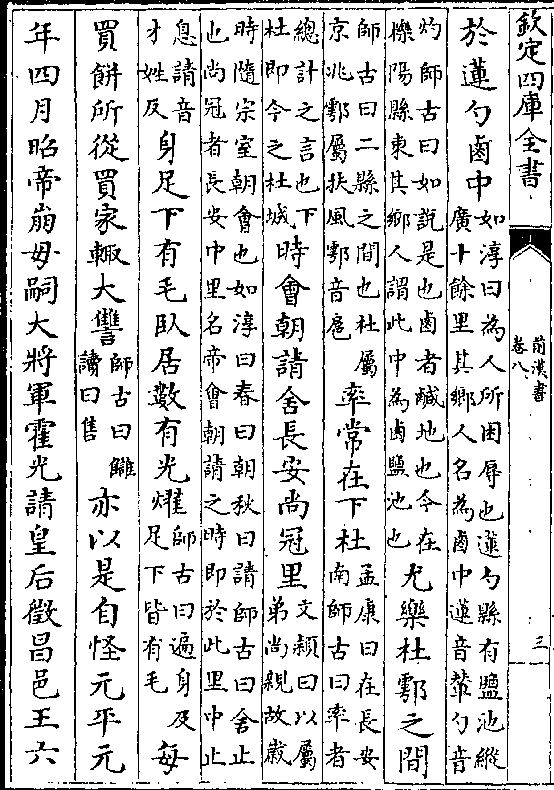 欽定四庫全書
前漢書
卷八
三
於蓮勺鹵中如淳曰為人所困辱也蓮勺縣有鹽池縱
廣十餘里其鄉人名為鹵中蓮音輦勺音
灼師古曰如説是也鹵者鹹地也今在
櫟陽縣東其鄉人謂此中為鹵鹽池也尤樂杜鄠之間
師古曰二縣之間也杜屬
京兆鄠屬扶風鄠音扈率常在下杜孟康曰在長安
南師古曰率者
總計之言也下
杜即今之杜城時會朝請舍長安尚冠里文頴曰以屬
弟尚親故嵗
時隨宗室朝會也如淳曰春曰朝秋曰請師古曰舍止
也尚冠者長安中里名帝會朝請之時即於此里中止
息請音
才姓反身足下有毛臥居數有光燿師古曰遍身及
足下皆有毛每
買餅所從買家輙大讐師古曰讎
讀曰售亦以是自怪元平元
年四月昭帝崩毋嗣大將軍霍光請皇后徵昌邑王六